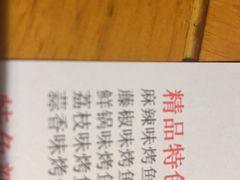 精品特色
麻辣味烤鱼
藤椒味烤鱼
鲜锅味烤鱼
荔枝味烤鱼
蒜香味烤